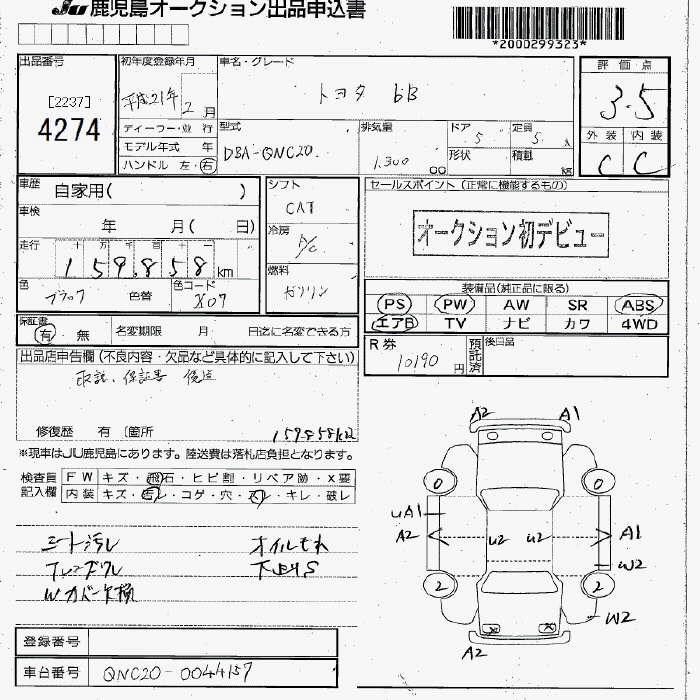 JU 鹿児島オークション出品申込書
*2000299323*
出品番号
[2237]
4274
初年度登録年月
平成21年 2月
車名・グレード
トヨタ bB
評価点
3.5
外装 内装
C C
ディーラー・並行
モデル年式 年
ハンドル 左・右
型式
DBA-QNC20
排気量
1.300 cc
ドア 5
定員 5 人
形状
積載 kg
車歴
自家用( )
車検
年 月( 日)
走行
十 万 千 百 十 一
159,858 km
色
ブラック 色替
色コード
X07
シフト
CAT
冷房
A/C
燃料
ガソリン
セールスポイント(正常に機能するもの)
オークション初デビュー
装備品(純正品に限る)
PS PW AW SR ABS
エアB TV ナビ カワ 4WD
保証書
有・無 名変期限 月 日迄に名変できる方
R券
10190 円
預託済
後日品
出品店申告欄(不良内容・欠品など具体的に記入して下さい)
取説、保証書 後送
修復歴 有〔箇所
159858km
※現車はJU鹿児島にあります。陸送費は落札店負担となります。
検査員記入欄
FW キズ・飛石・ヒビ割・リペア跡・X要
内装 キズ・汚レ・コゲ・穴・スレ・キレ・破レ
シート汚レ オイルモれ
下回りS
Wカバー欠損
A2 A1
0 0
uA1
A2 u2 u2 A1
W2
2 2
W2
X X
A2
登録番号
車台番号 QNC20-0044157